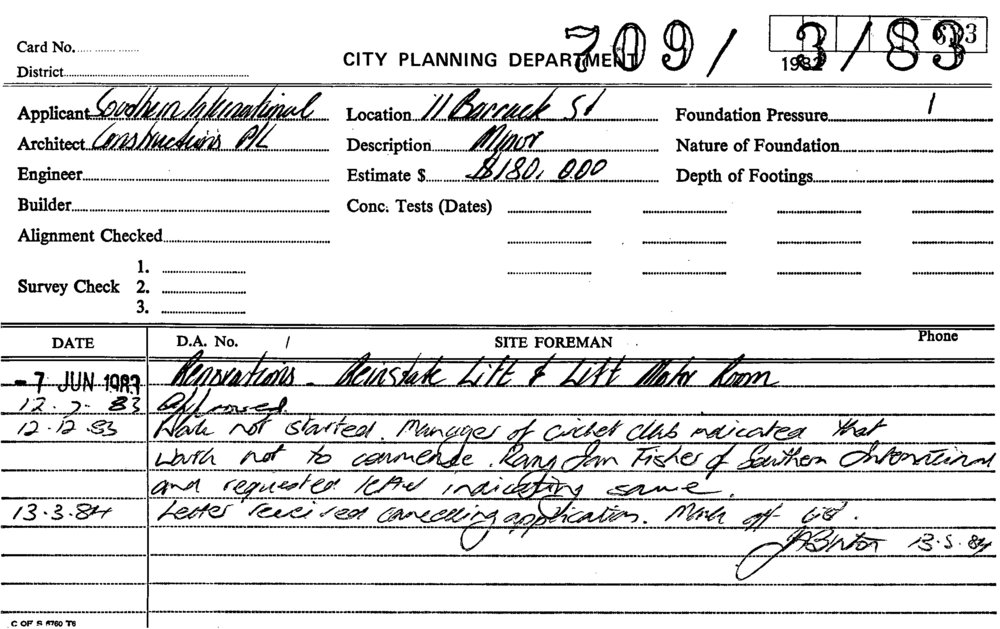 Card No.
District
CITY PLANNING DEPARTMENT
709/3/83
198
Applicant Southern International
Location 11 Barrack St
Foundation Pressure
Architect Constructions P/L
Description Minor
Nature of Foundation
Engineer
Estimate $ $180,000
Depth of Footings
Builder
Conc. Tests (Dates)
Alignment Checked
Survey Check 1.
2.
3.
DATE D.A. No. / SITE FOREMAN Phone
-7 JUN 1983 Renovations - Reinstate Lift & Lift Motor Room
12.7.83 Approved.
12.12.83 Work not started. Manager of cricket club indicated that
work not to commence. Rang Fisher of Southern International
and requested letter indicating same.
13.3.84 Letter received cancelling application. Mark off list.
13.3.84
C OF S 6760 T6